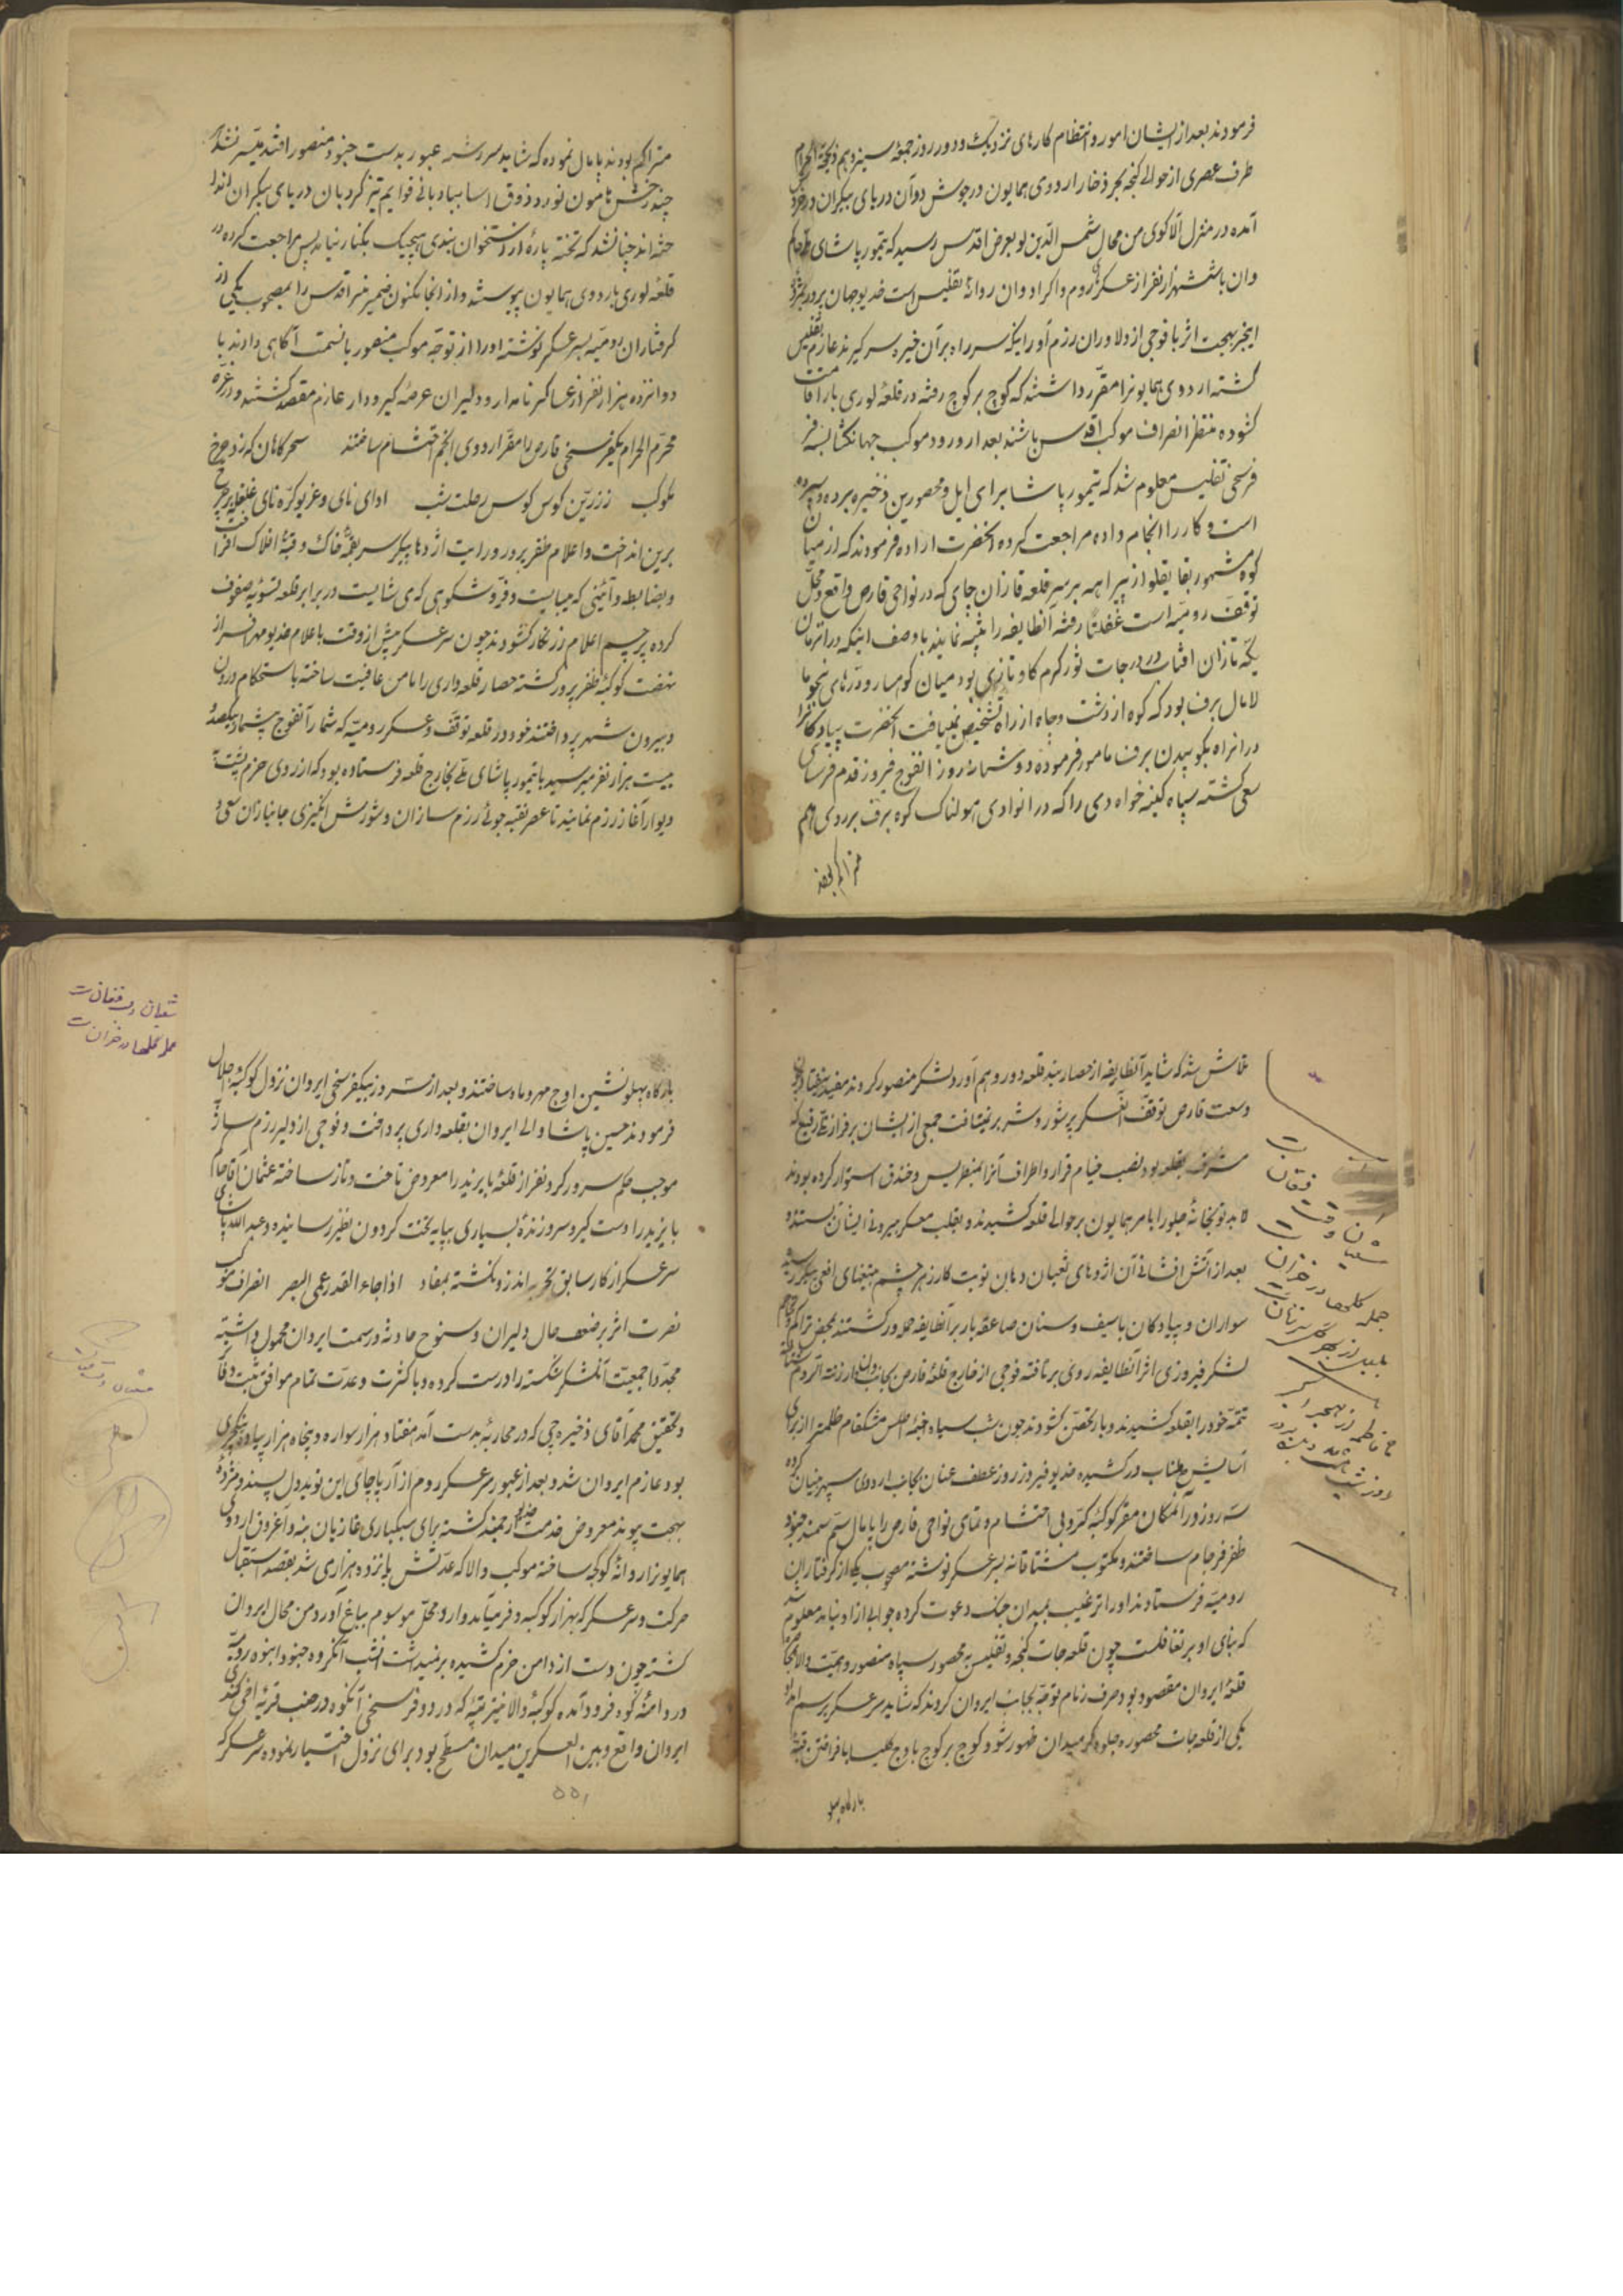 فرمودند بعد از ایشان امور و انتظام کارهای نزدیک و دور روز جمعه سیزدهم ذیحجة الحرام
طرف عصری از حوالی گنجه بحر ذخار اردوی همایون در جوش دوآن دریای بیکران در خروش
آمده در منزل آلاکوی من محال شمس الدین لو بعرض اقدس رسید که تیمور پاشای حاکم
وان با ششهزار نفر از عسکر روم و اکراد وان روانهٔ تفلیس است خدیو جهان پرور بمژدهٔ
اینخبر بهجت اثر با فوجی از دلاوران رزم آور اینکه سر راه بر آن خیره سر گیرند عازم تفلیس
گشته اردوی همایونرا مقرر داشتند که کوچ بر کوچ رفته در قلعهٔ لوری بار اقامت
گشوده منتظر انصراف موکب اقدس باشند بعد از ورود موکب جهانگشا بسه
فرسخی تفلیس معلوم شد که تیمور پاشا برای ایل و محصورین ذخیره برده و سپرده
است و کار را انجام داده مراجعت کرده آنحضرت اراده فرمودند که از میان
کوه مشهور بقایقلو از بیراهه بر سر قلعه قازان چای که در نواحی قارص واقع و محل
توقف رومیه است غفلتاً رفته آنطایفه را تنبیه نمایند با وصف اینکه در آنزمان
یکه تازان آفتاب در درجات ثور گرم گاو تازی بود میان کوهسار و دره‌های
لامال برف بود که کوه از دشت و چاه از راه تشخیص نمییافت آنحضرت پیادگان را
در آنراه بکوبیدن برف مامور فرموده دو شبانه روز آنفوج فیروز قدم فرسای
سعی گشته سپاه کینه خواه دی را که در آنوادی هولناک کوه برف بر روی هم
متراکم بودند پایمال نموده که شاید سر رشته عبور بدست جنود منصور افتد میسر نشد
چند رخش هامون نورد و ذوق اسا بباد بانی قوایم تیز گرد بان دریای بیکران
انداخته اند چنان نشد که تخته پاره از استخوان بندی هیچیک بکنار نیامد پس مراجعت کرده در
قلعه لوری باردوی همایون پیوستند و از آنجا مکنون ضمیر منیر اقدس را بمصحوب یکی از
گرفتاران رومیه بسر عسکر نوشته او را از توجه موکب منصور بانسمت آگاهی دادند با
دوانزده هزار نفر از عساکر نامدار و دلیران عرصهٔ گیر و دار عازم مقصد گشتند و در غره
محرم الحرام یکفرسخی قارص را مقر اردوی انجم احتشام ساختند سحرگاهان که زد چرخ
کوکب ز زرین کوس کوس رحلت شب ادای نای و غریو کره نای غلغله در چرخ
برین انداخت و اعلام ظفر پرور و رایت اژدها پیکر سر بقمهٔ خاک و قبهٔ افلاک افراخت
و بضابطه و آئینی که میبایست و فر و شکوهی که می شایست در برابر قلعه تسویه صفوف
کرده پرچم اعلام زرنگار گشودند چون سر عسکر پیش از وقت باعلام خدیو مهر افسر از
نهضت کوکبهٔ ظفر پرور گشته حصار قلعه‌داری را مامن عافیت ساخته باستحکام درون
و بیرون شهر پرداختند خود در قلعه توقف و عسکر رومیه که شمار آنفوج بیشمار بیکصد
بیست هزار نفر میرسید با تیمور پاشای ملی بخارج قلعه فرستاده بود که از روی حزم پشت به
دیوار آغاز رزم نمایند تا عصر نقبه جوئی رزم سازان و شورش انگیزی جانبازان سعی و
تلاش شد که شاید آنطایفه از حصار بند قلعه دور و هم آورد لشکر منصور گردند مفید نیفتاد چون
وسعت قارص توقف آن عسکر پر شور و شر بر نمیتافت جمعی از ایشان بر فراز تل رفیع که
مشرف بقلعه بود نصب خیام قرار و اطراف آنرا بمتاریس و خندق استوار کرده بودند
لابد توپخانهٔ جلو را بامر همایون بر حوالی قلعه کشیدند و بقلب معسکر بیرونی ایشان بستند و
بعد از آتش افشانی آن اژدهای ثعبان دهان نوبت کارزهر چشم تیغهای افعی پیکر رسید
سواران و پیادگان با سیف و سنان صاعقه بار بر آنطایفه حمله ور گشتند بمحض تراکم و هجوم
لشکر فیروزی اثر آنطایفه روی بر تافته فوجی از خارج قلعهٔ قارص بجانب وان و ارزنة الروم
تتمه خود را بقلعه کشیدند و بار تحصن گشودند چون شب سیاه خیمهٔ اطلس مشکفام ظلمترا از برای
آسایش جناب در کشیده خدیو فیروز روز عطف عنان بجانب اردوی سپهر بنیان کرده
سه روز در آنمکان مقر کوکبهٔ کرّوبی احتشام و تمامی نواحی قارص را پایمال سم سمند جنود
ظفر فرجام ساختند و مکتوب مشتاقانه بسر عسکر نوشته مصحوب یکی از گرفتاران
رومیه فرستادند او را ترغیب بمیدان جنگ دعوت کرده جوابی از او نیامد معلوم شد
که بنای او بر تغافلست چون قلعه جات گنجه و تفلیس به محصور سپاه منصور و همت والا
قلعهٔ ایروان مقصود بود صرف زمام توجه بجانب ایروان کردند که شاید سر عسکر برسم امداد
یکی از قلعه جات محصوره جلوه گر میدان ظهور شود و کوچ بر کوچ باوج کلیسا بافراختن قبه
بارگاه پهلو نشین اوج مهر و ماه ساختند و بعد از سه روز بیکفرسخی ایروان نزول کوکبهٔ اجلال
فرمودند حسین پاشا والی ایروان بقلعه داری پرداخت و فوجی از دلیر رزم ساز
موجب حکم سرور کرد و نفر از قلعهٔ بایزید را معروض تاخت و تاز ساخته عثمان آقا حاکم
بایزید را دستگیر و سر و زندهٔ بسیاری بپایه تخت گردون نظیر رسانیده و عبدالله پاشای
سر عسکر از کار سابق تجربه اندوز نگشته بمفاد اذا جاء القدر عمی البصر انصراف موکب
نصرت اثر بر ضعف حال دلیران و سنوح حادثه در سمت ایروان محمول داشته
مجدداً جمعیت آنلشکر شکسته را درست کرده و با کثرت و عدّت تمام موافق ثبت
و تحقیق محمد آقای ذخیره چی که در محاربهٔ بدست آمد هفتاد هزار سواره و پنجاه هزار پیاده ینکچری
بود عازم ایروان شد و بعد از عبور سر عسکر روم از آرپاچای این نوید دل پسند و مژدهٔ
بهجت پیوند معروض خدمت خدیو ارجمند گشته برای سبکباری غازیان بنه و آغروق اردوی
همایونرا روانهٔ گوگجه ساخته موکب والا که عدتش پانزده هزار می شد بقصد استقبال
حرکت و سر عسکر که بهزار کوکبه و فر میآمد وارد محل موسوم بباغ آورد من محال ایروان
گشته چون دست از دامن حزم کشیده بر نمیداشت آنشب آنگروه جنود انبوه رومیه
در دامنهٔ کوه فرود آمده کوکبهٔ والا نیز تپهٔ که در دو فرسخی آنکوه در جنب قریهٔ اخی کندی
ایروان واقع و بین العسکرین میدان مسطح بود برای نزول اختیار نموده سر عسکر که